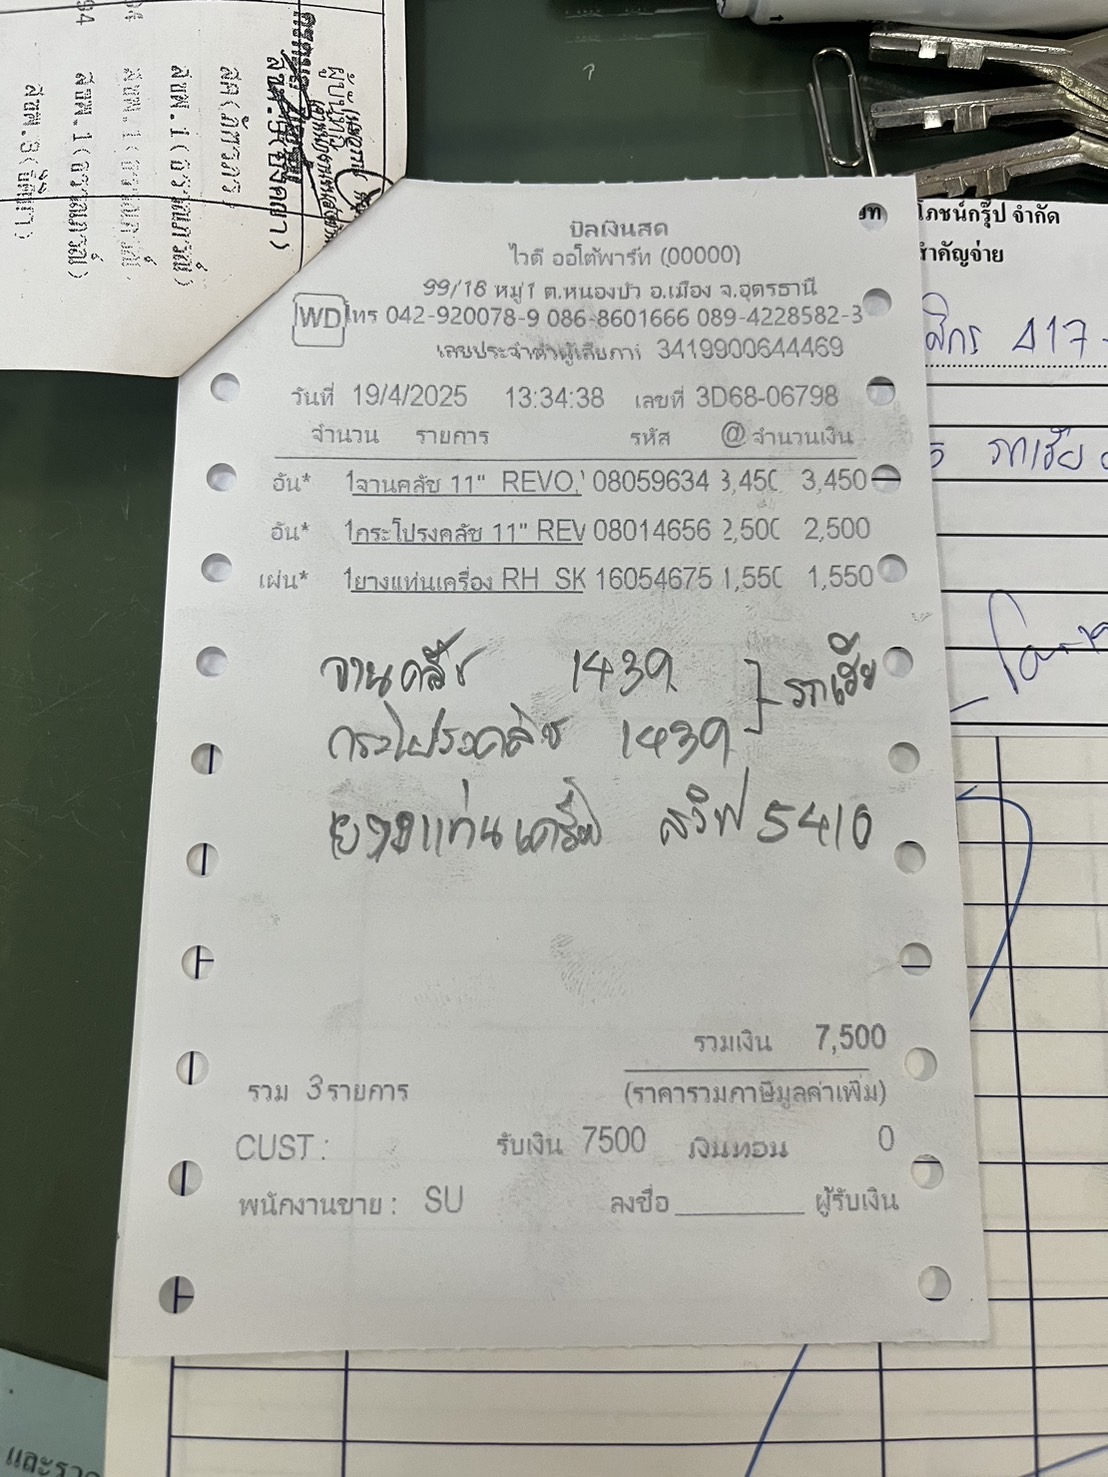 บิลเงินสด
ไวดี ออโต้พาร์ท (00000)
99/18 หมู่1 ต.หนองบัว อ.เมือง จ.อุดรธานี
WD โทร 042-920078-9 086-8601666 089-4228582-3
เลขประจำตัวผู้เสียภาษี 3419900644469
วันที่ 19/4/2025 13:34:38 เลขที่ 3D68-06798
จำนวน รายการ รหัส @ จำนวนเงิน
อัน* 1จานคลัช 11" REVO, 08059634 3,450 3,450
อัน* 1กระโปรงคลัช 11" REV 08014656 2,500 2,500
แผ่น* 1ยางแท่นเครื่อง RH SK 16054675 1,550 1,550
จานคลัช 1439
กระโปรงคลัช 1439
รถเฮีย
ยางแท่นเครื่อง สวิฟ 5410
รวมเงิน 7,500
รวม 3รายการ (ราคารวมภาษีมูลค่าเพิ่ม)
CUST : รับเงิน 7500 เงินทอน 0
พนักงานขาย : SU ลงชื่อ ผู้รับเงิน
โภชน์กรุ๊ป จำกัด
สำคัญจ่าย
417
รถเฮีย
สธ(ภัชวภร)
สชพ.1(
สชพ.1(
สชพ.1(
สชพ.3(